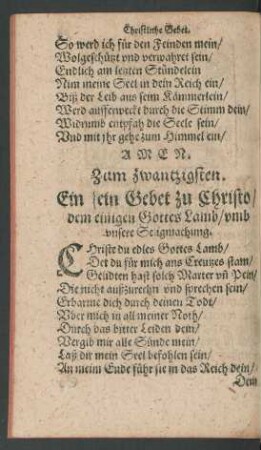 Christliche Gebet.
So werd ich für den Feinden mein/
Wolgeschützt vnd verwahret sein/
Endlich am letzten Stündelein
Nim meine Seel in dein Reich ein/
Biß der Leib aus seim Kämmerlein/
Werd aufferweckt durch die Stimm dein/
Widrumb entpfah die Seele sein/
Vnd mit jhr gehe zum Himmel ein/
A M E N.
Zum zwantzigsten.
Ein fein Gebet zu Christo/
dem einigen Gottes Lamb/ vmb
vnsere Seligmachung.
CHriste du edles Gottes Lamb/
Der du für mich ans Creutzes stam/
Gelidten hast solch Marter vñ Pein/
Die nicht außzurechn vnd sprechen sein/
Erbarme dich durch deinen Todt/
Vber mich in all meiner Noth/
Durch das bitter Leiden dein/
Vergib mir alle Sünde mein/
Laß dir mein Seel befohlen sein/
An meim Ende führ sie in das Reich dein/
Dein